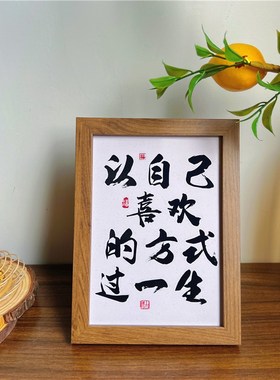 以自己
喜欢
的方式
过一生